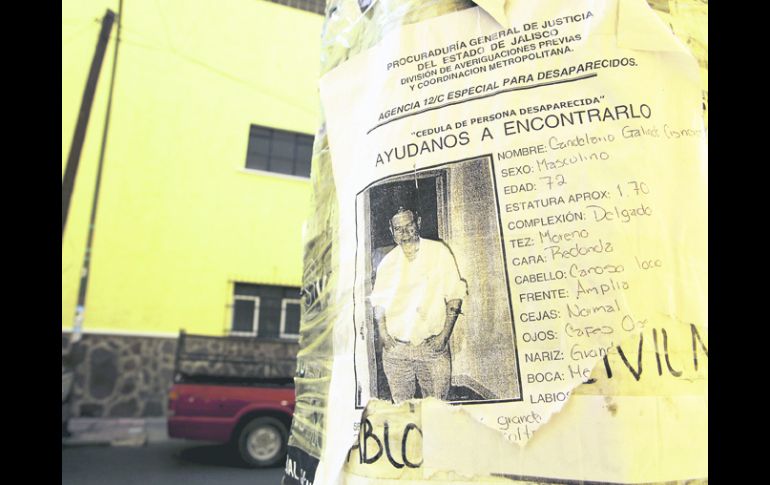 PROCURADURÍA GENERAL DE JUSTICIA
DEL ESTADO DE JALISCO
DIVISIÓN DE AVERIGUACIONES PREVIAS
Y COORDINACION METROPOLITANA.
AGENCIA 12/C ESPECIAL PARA DESAPARECIDOS.
"CEDULA DE PERSONA DESAPARECIDA"
AYUDANOS A ENCONTRARLO
NOMBRE: Candelario
SEXO: Masculino
EDAD: 72
ESTATURA APROX: 1.70
COMPLEXIÓN: Delgado
TEZ: Moreno
CARA: Redonda
CABELLO: Canoso
FRENTE: Amplia
CEJAS: Normal
OJOS: Cafes
NARIZ: Grand
BOCA: Me
LABIOS
grande
CIVIL M
ABLO